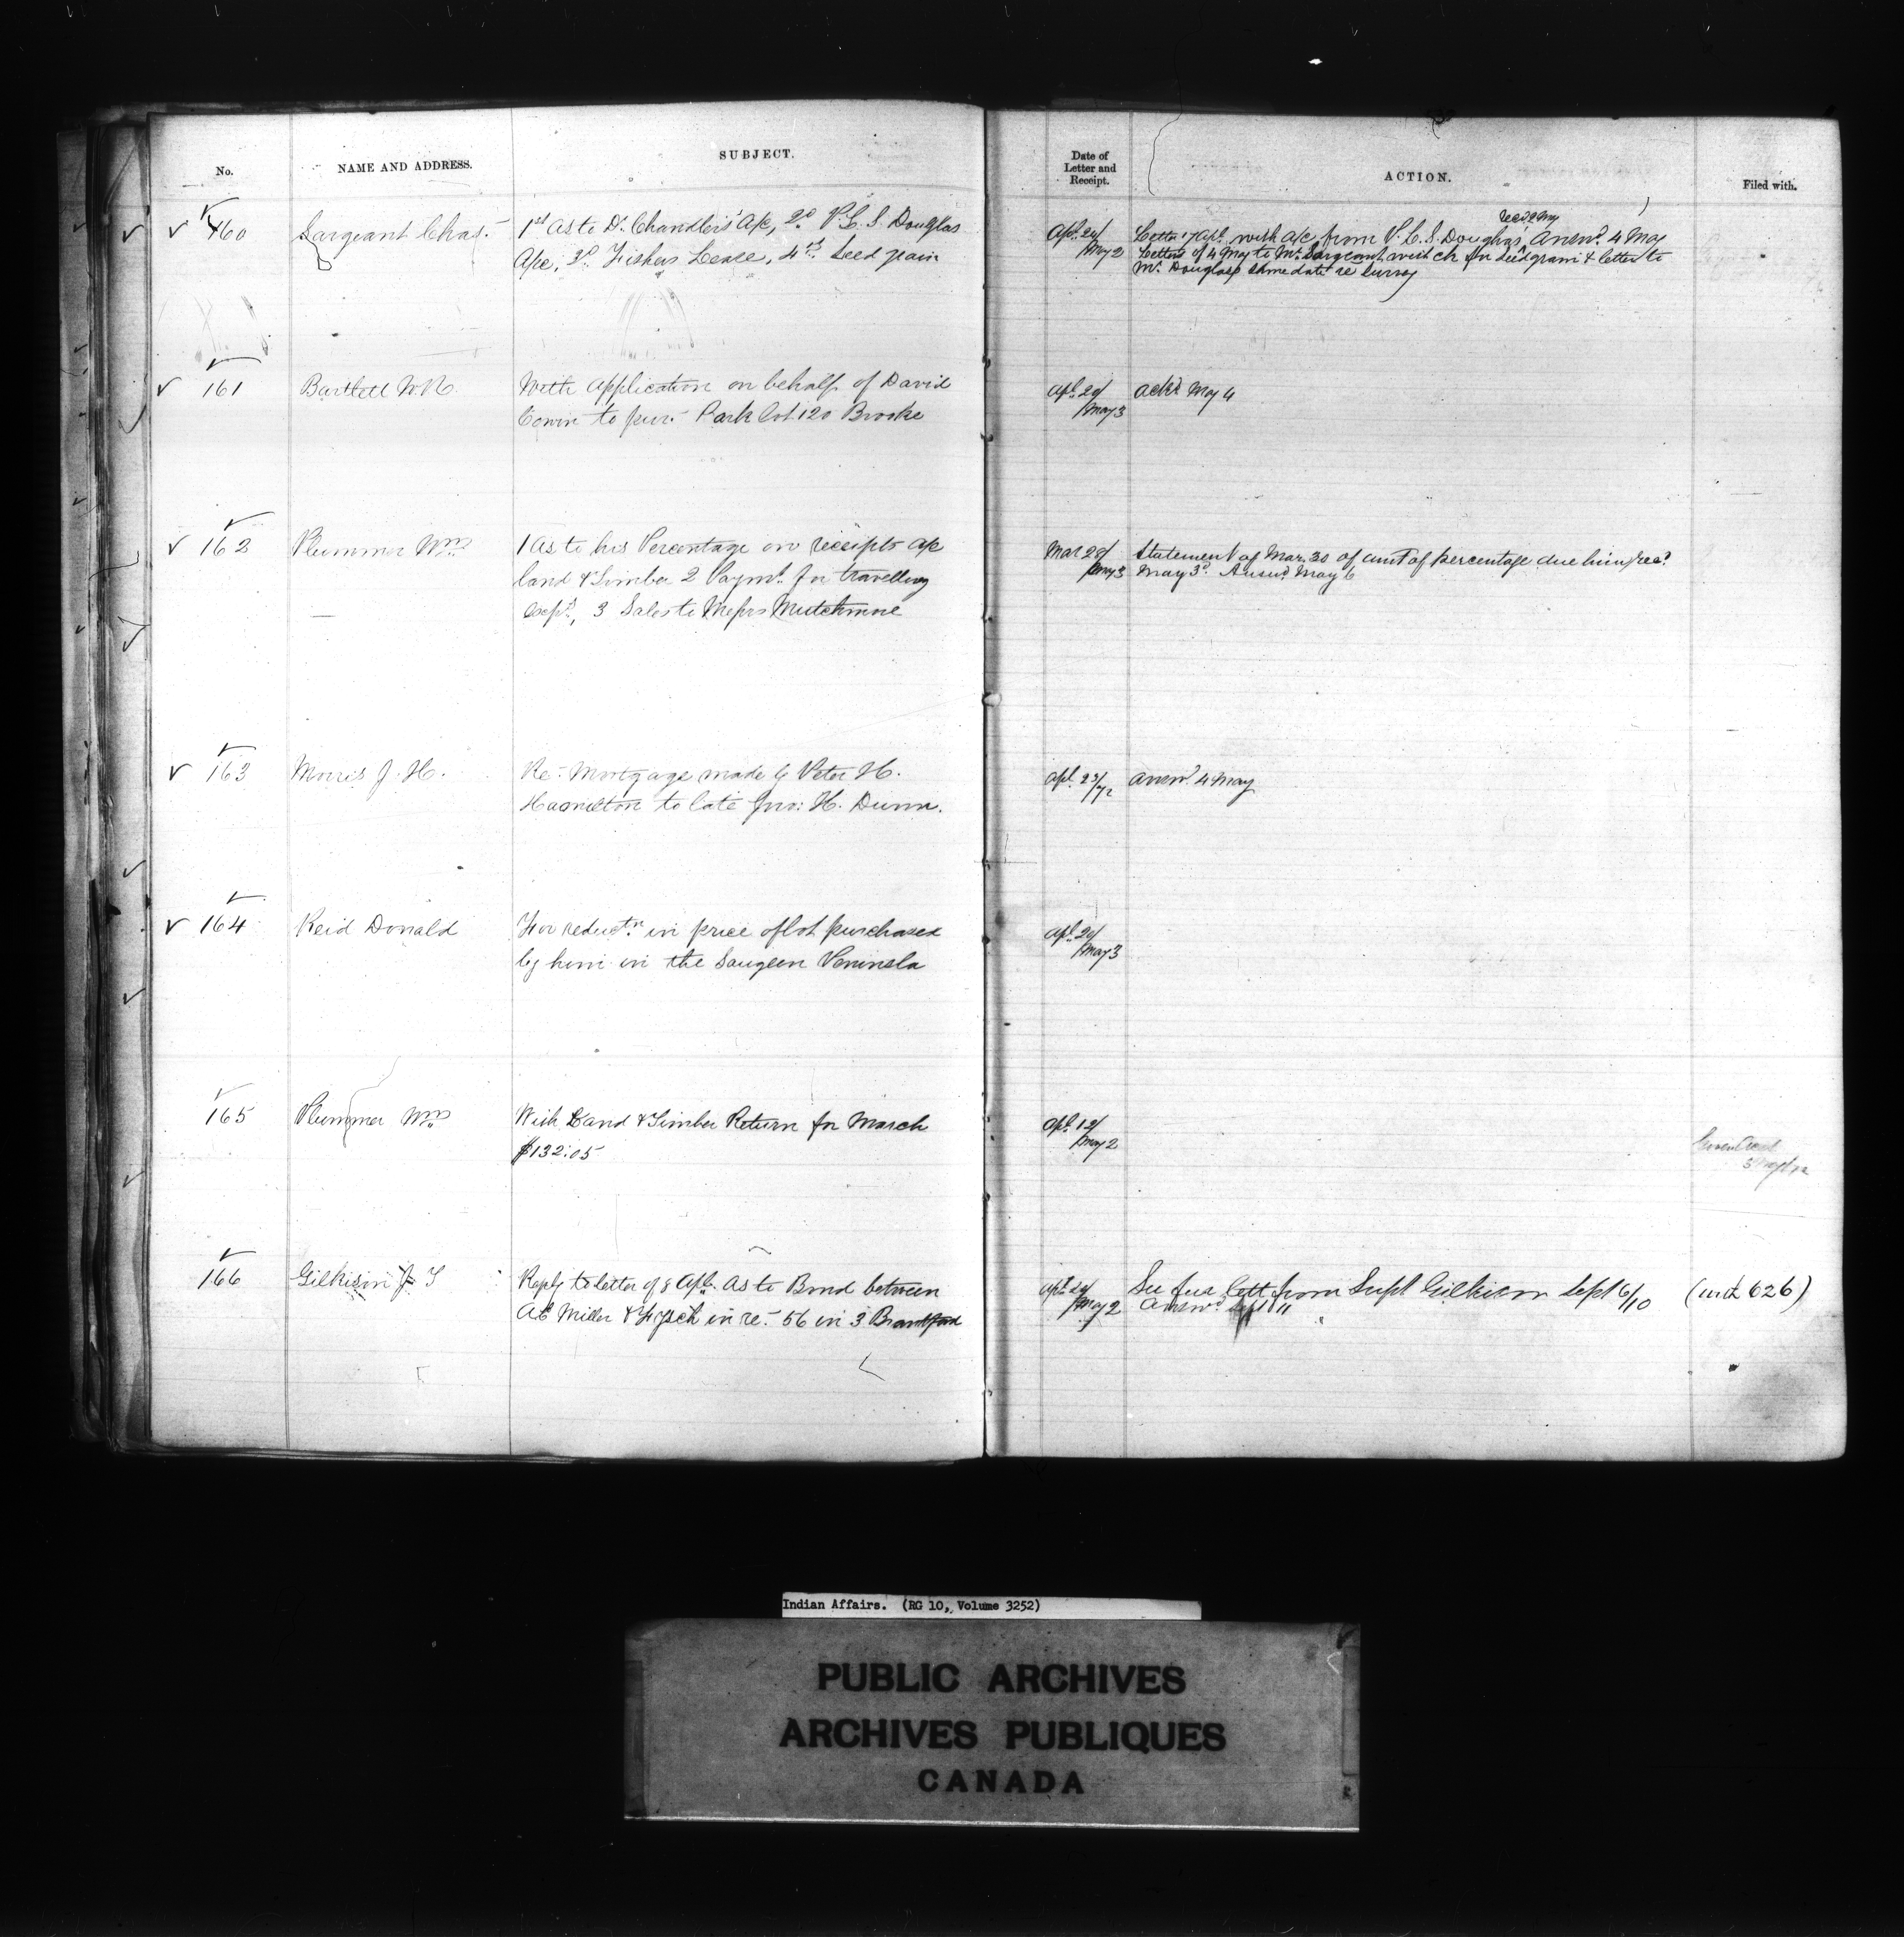 No.
NAME AND ADDRESS.
SUBJECT.
Date of
Letter and
Receipt.
ACTION.
Filed with.
160
Sargeant Chas.
1st As to Dr. Chandler's A/c, 2d V. C. S. Douglas
A/c, 3d. Fishers Lease, 4th Seed grain
Apl. 24/
May 2
recd. May
Letter 17 Apl. with a/c from V. C. S. Douglas, Answd. 4 May
Letters of 4 May to Mr. Sargeant with ch for Seed grain & letter to
Mr. Douglas same date re Survey
161
Bartlett W.R.
With Application on behalf of David
Cowin to pur. Park lot 120 Brooke
Apl. 29/
May 3
Ackd. May 4
162
Plummer Wm.
1 As to his Percentage on receipts a/c
land & Timber 2 Paymt. for travelling
Exps., 3 Sales to Messrs Mutchmore
Mar 28/
May 3
Statement of Mar. 30 of amt of percentage due him, rec.d
May 3d. Answd. May 6
163
Morris J. H.
Re: Mortgage made by Peter H.
Hamilton to late Jno: H. Dunn.
Apl. 23/72
Answd. 4 May
164
Reid Donald
For reductn. in price of lot purchased
by him in the Saugeen Peninsla
Apl. 29/
May 3
165
Plummer Wm.
With Land & Timber Return for March
$132.05
Apl. 12/
May 2
166
Gilkison J T
Reply to letter of 8 Apl. As to Bond between
Miller & in re. 56 in 3 Brantford
Apl. 29/
May 2
See lett from Supt Gilkison Sept 6/10
Answd Sept 11
626)
Indian Affairs. (RG 10, Volume 3252)
PUBLIC ARCHIVES
ARCHIVES PUBLIQUES
CANADA